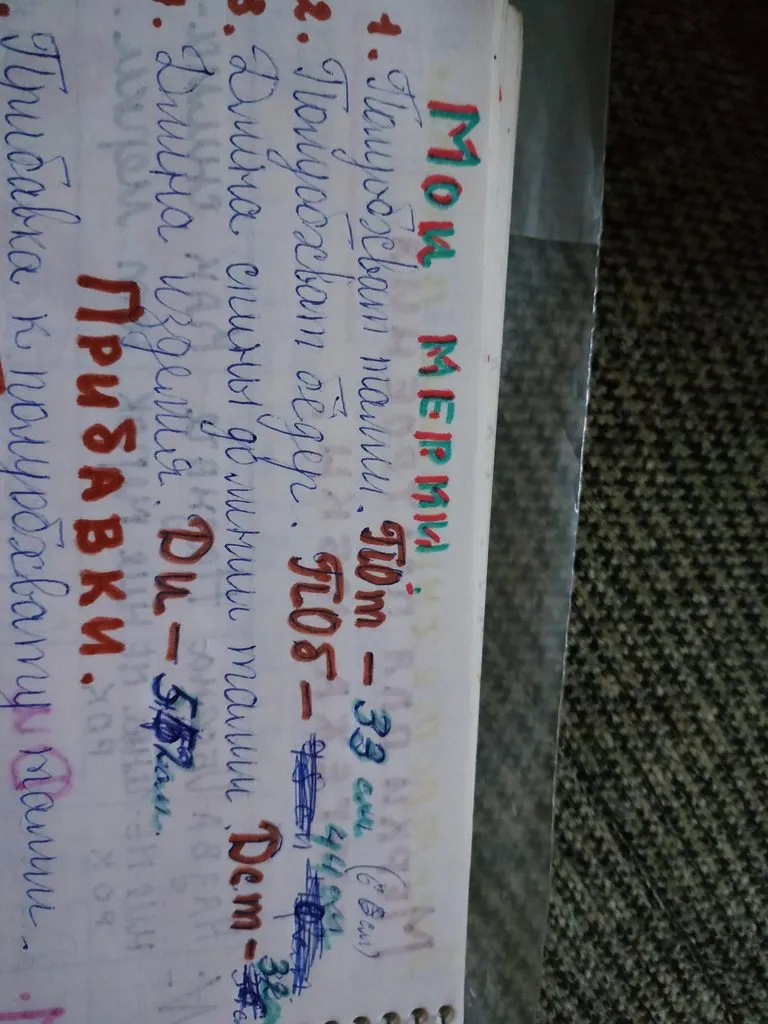 Мои мерки
1. Полуобхват талии. ПОт - 33 см (66см)
2. Полуобхват бёдер. ПОб - 44см
3. Длина спины до линии талии Дст - 38
Длина изделия. Ди - 52см.
Прибавки.
Прибавка к полуобхвату талии.